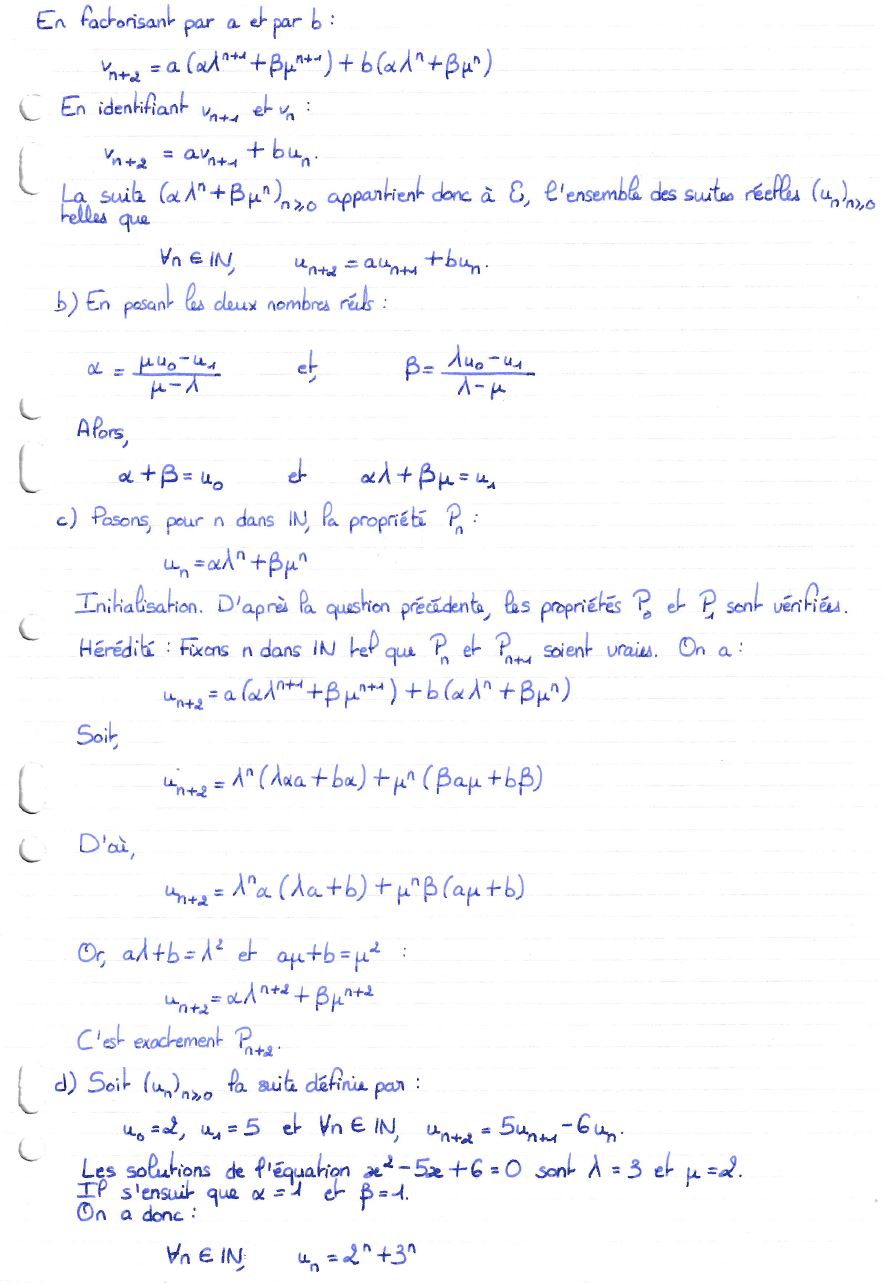 En factorisant par a et par b :
v_{n+2} = a(αλ^{n+1} + βμ^{n+1}) + b(αλ^n + βμ^n)
En identifiant v_{n+1} et v_n :
v_{n+2} = av_{n+1} + bu_n.
La suite (αλ^n + βμ^n)_{n≥0} appartient donc à E, l'ensemble des suites réelles (u_n)_{n≥0}
telles que
∀n ∈ ℕ, u_{n+2} = au_{n+1} + bu_n.
b) En posant les deux nombres réels :
α = (μu_0 - u_1)/(μ - λ) et, β = (λu_0 - u_1)/(λ - μ)
Alors,
α + β = u_0 et αλ + βμ = u_1
c) Posons, pour n dans ℕ, la propriété P_n :
u_n = αλ^n + βμ^n
Initialisation. D'après la question précédente, les propriétés P_0 et P_1 sont vérifiées.
Hérédité : Fixons n dans ℕ tel que P_n et P_{n+1} soient vraies. On a :
u_{n+2} = a(αλ^{n+1} + βμ^{n+1}) + b(αλ^n + βμ^n)
Soit,
u_{n+2} = λ^n(λαa + bα) + μ^n(βaμ + bβ)
D'où,
u_{n+2} = λ^n α(λa + b) + μ^n β(aμ + b)
Or, aλ + b = λ² et aμ + b = μ² :
u_{n+2} = αλ^{n+2} + βμ^{n+2}
C'est exactement P_{n+2}.
d) Soit (u_n)_{n≥0} la suite définie par :
u_0 = 2, u_1 = 5 et ∀n ∈ ℕ, u_{n+2} = 5u_{n+1} - 6u_n.
Les solutions de l'équation x² - 5x + 6 = 0 sont λ = 3 et μ = 2.
Il s'ensuit que α = 1 et β = 1.
On a donc :
∀n ∈ ℕ, u_n = 2^n + 3^n